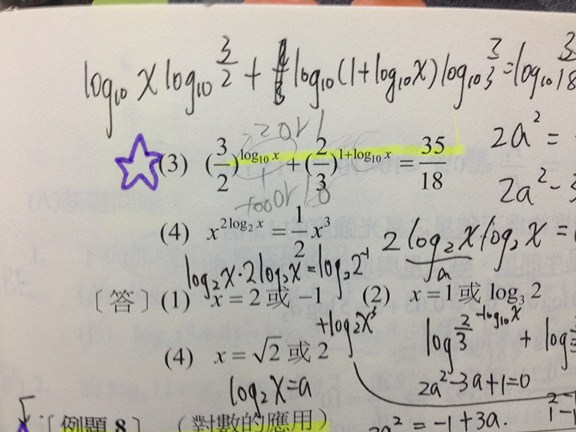 log₁₀ x log₁₀ 3/2 + log₁₀(1+log₁₀x) log₁₀
2a² =
(3) (3/2)^(log₁₀ x) + (2/3)^(1+log₁₀ x) = 35/18
2a² - 3
(4) x^(2log₂ x) = 1/2 x³
2 log₂x log₂x =
a
log₂x·2log₂x=log₂2⁻¹
+log₂x³
〔答〕(1) x = 2 或 −1 (2) x = 1 或 log₃ 2
(4) x = √2 或 2
log₂x=a
2a²-3a+1=0
〔例題 8〕 (對數的應用)
= -1+3a.